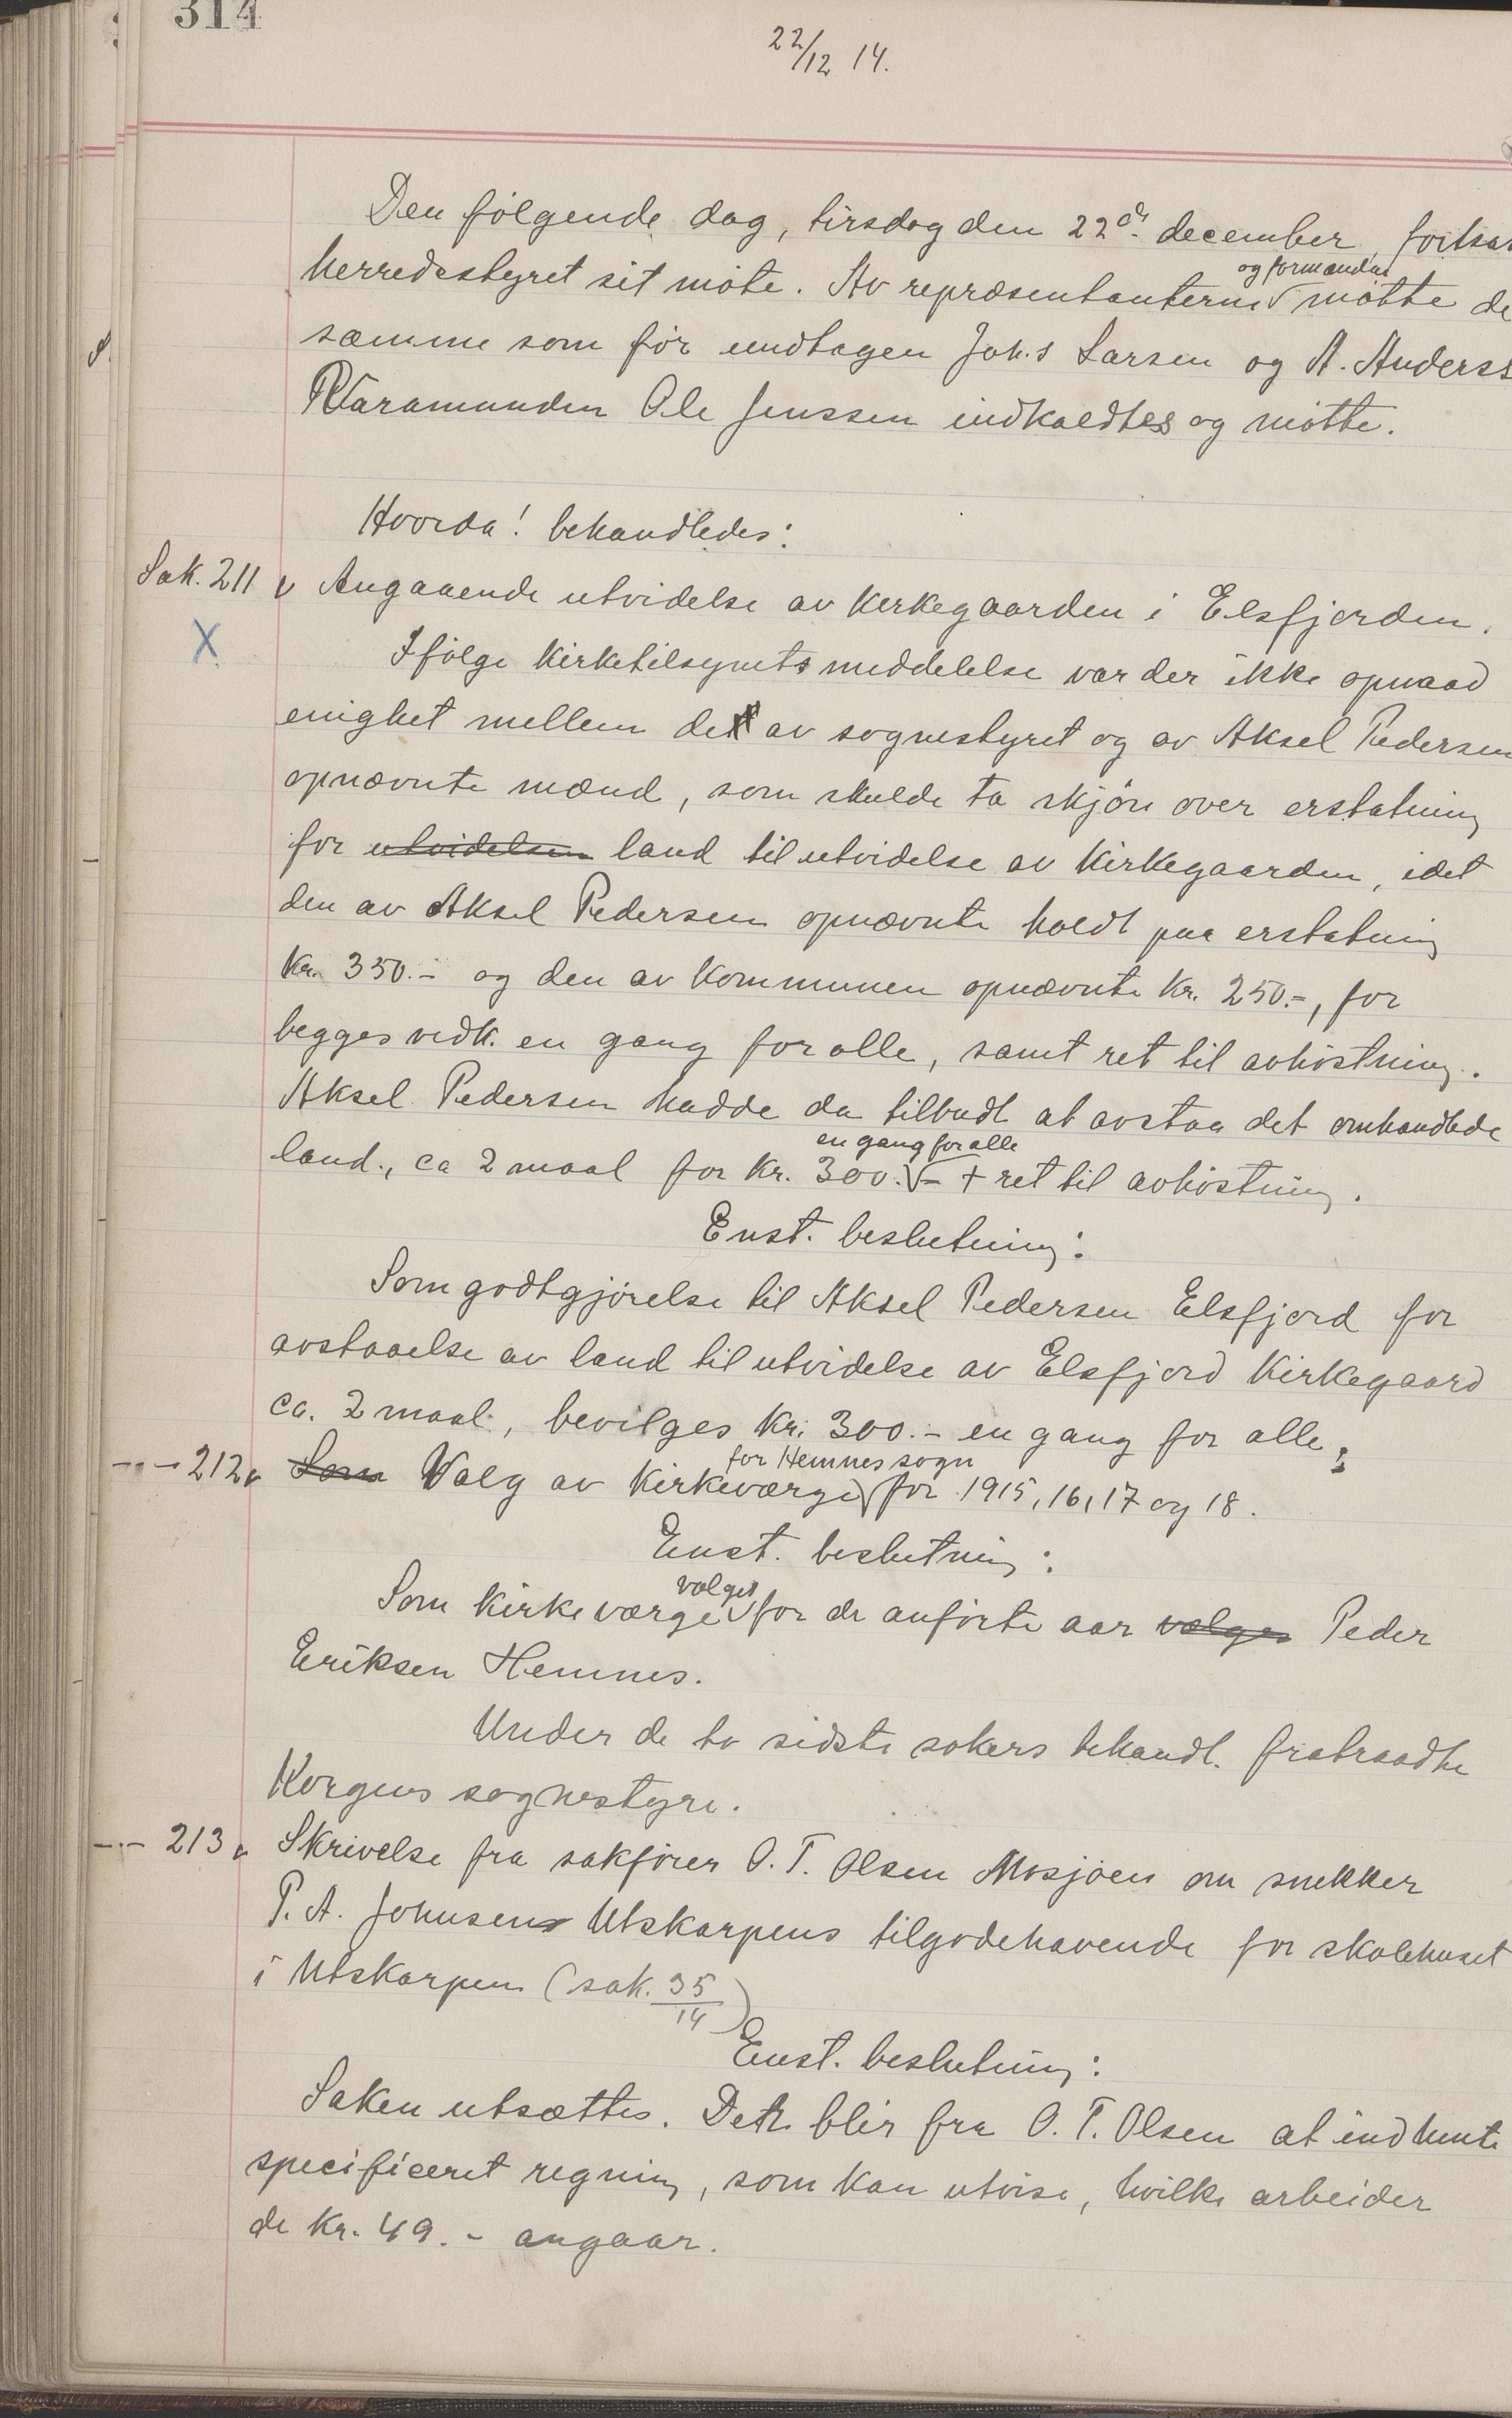 314
22/12 14.
Den følgende dag, tirsdag den 22de december, fortsat
herredsstyret sit møte. Av repræsentanterne og formænd møtte de
samme som før undtagen Joh.s Larsen og A. Anderss
Varamanden Ole Jenssen indkaldtes og møtte.
Hvorda! behandledes:
Sak. 211 Angaaende utvidelse av kirkegaarden i Elsfjorden.
X
Ifølge kirketilsynets meddelelse var der ikke opnaad
enighet mellem de av sognestyret og av Aksel Pedersen
opnævnte mænd, som skulde ta skjøn over erstatning
for utvidelsen land til utvidelse av kirkegaarden, idet
den av Aksel Pedersen opnævnte holdt paa erstatning
kr. 350.- og den av kommunen opnævnte kr. 250.-, for
begges vedk. en gang for alle, samt ret til avhøstning.
Aksel Pedersen hadde da tilbudt at avstaa det omhandlede
land, ca 2 maal for kr. 300.- en gang for alle + ret til avhøstning.
Enst. beslutning:
Som godtgjørelse til Aksel Pedersen Elsfjord for
avstaaelse av land til utvidelse av Elsfjord kirkegaard
ca. 2 maal, bevilges kr. 300.- en gang for alle.
-"- 212 Som Valg av kirkeværge for Hemnes sogn for 1915, 16, 17 og 18.
Enst. beslutning:
Som kirkeværge vælges for de anførte aar vælges Peder
Eriksen Hemnes.
Under de to sidste sakers behandl. fratraadte
Korgens sognestyre.
-"- 213 Skrivelse fra sakfører O. T. Olsen Mosjøen om snekker
P. A. Johnsens Utskarpens tilgodehavende for skolehuset
i Utskarpen (sak. 35/14)
Enst. beslutning:
Saken utsættes. Det blir fra O. T. Olsen at indhente
specificeret regning, som kan utvise, hvilke arbeider
de kr. 49.- angaar.